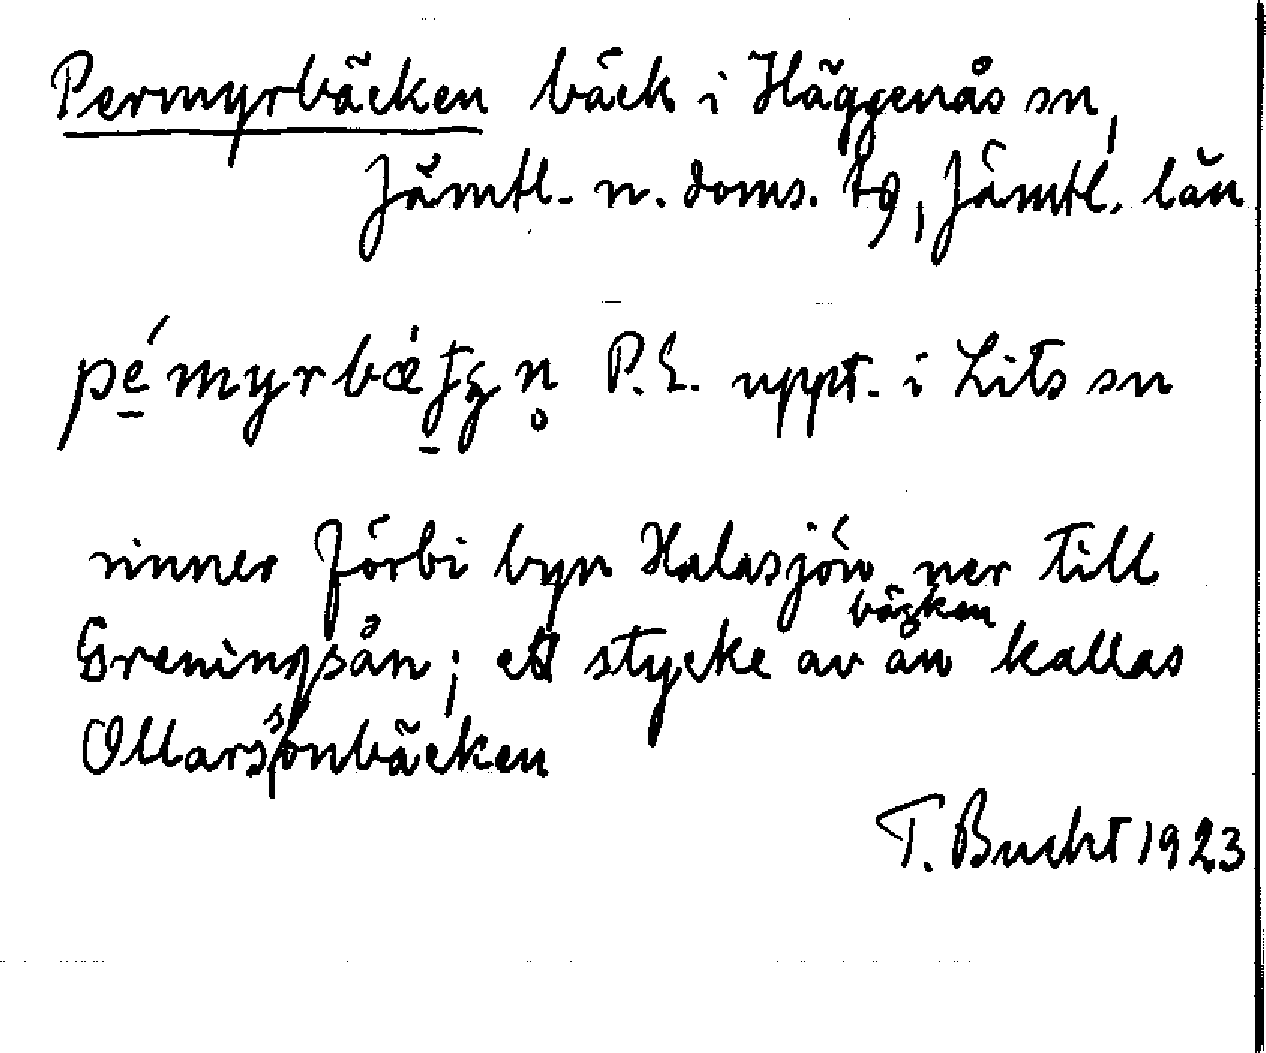 Permyrbäcken bäck i Häggenås sn,
Jämtl. n. doms. tg, Jämtl. län
P.E. uppt. i Lits sn
rinner förbi byn Halasjön ner till
bäcken
Greningsån; ett stycke av ån kallas
Ollarsonbäcken
T. Bucht 1923